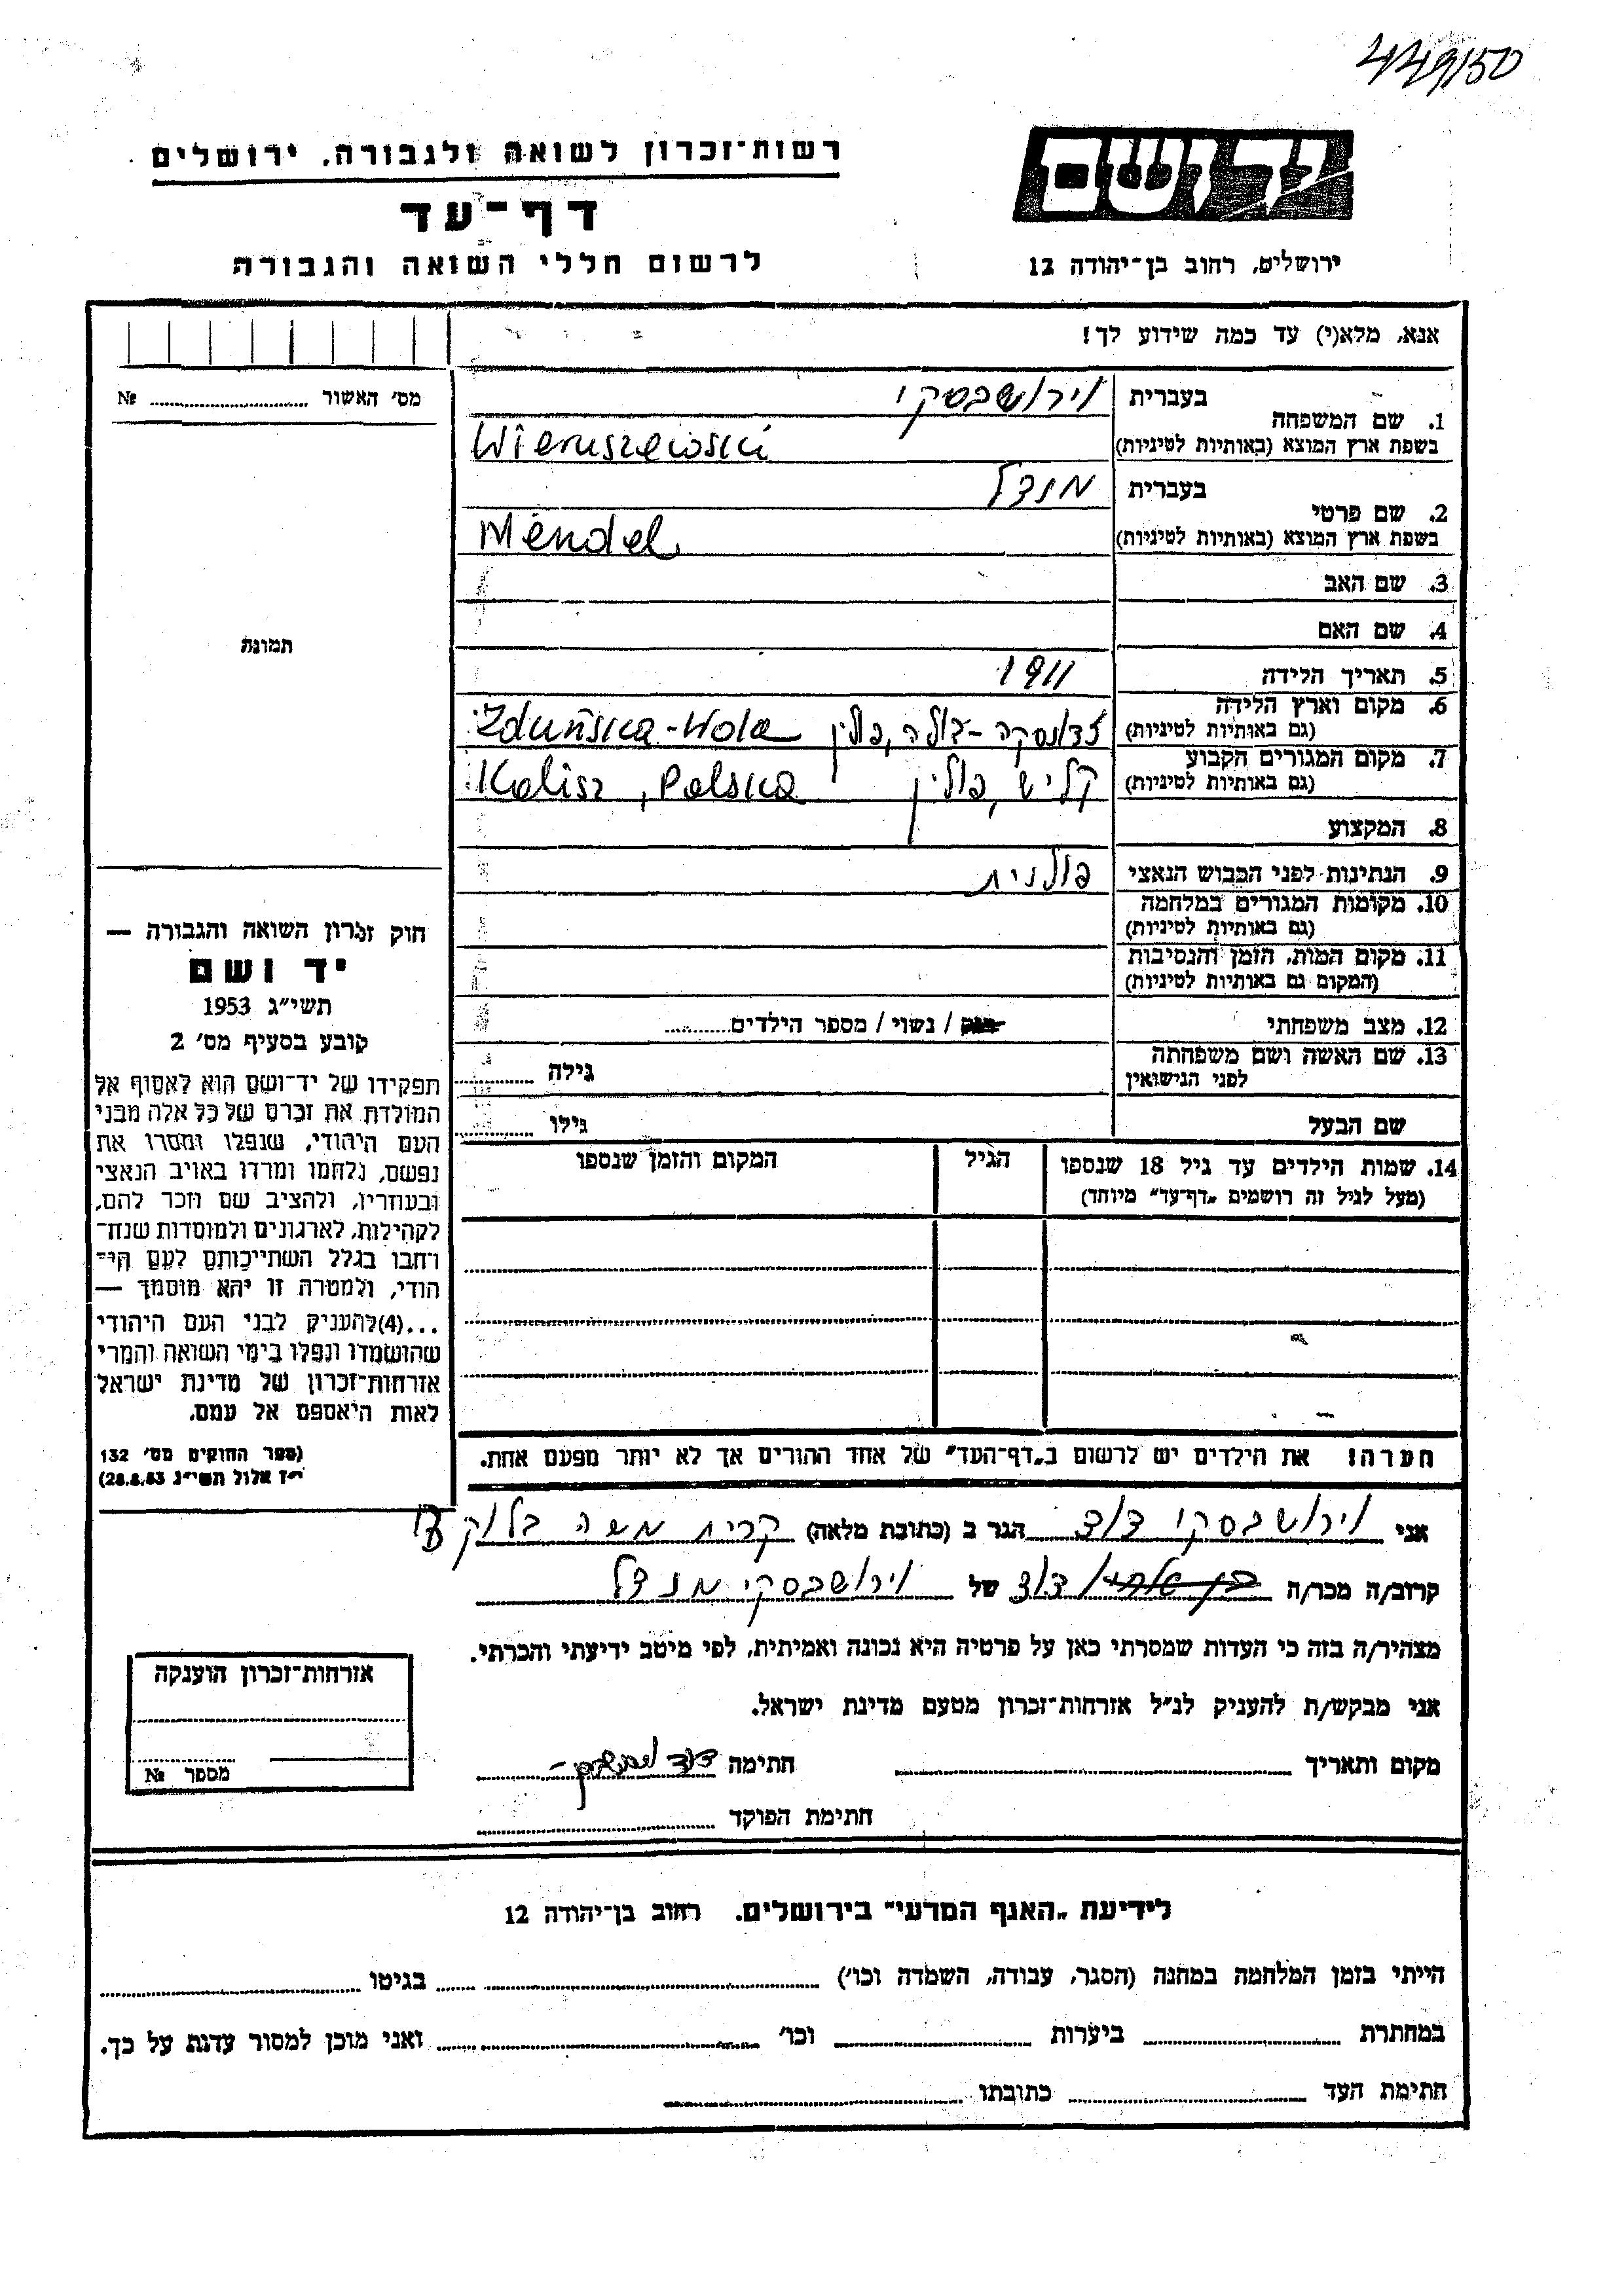 449/50
יד ושם
רשות־זכרון לשואה ולגבורה. ירושלים
דף־עד
לרשום חללי השואה והגבורה
ירושלים, רחוב בן־יהודה 12
אנא, מלא(י) עד כמה שידוע לך!
מס׳ האשור № 
1. שם המשפחה
בעברית וירושבסקי
בשפת ארץ המוצא (באותיות לטיניות) Wieruszewski
2. שם פרטי
בעברית מנדל
בשפת ארץ המוצא (באותיות לטיניות) Mendel
3. שם האב
4. שם האם
5. תאריך הלידה 1911
6. מקום וארץ הלידה
(גם באותיות לטיניות) זדונסקה-וולה, פולין Zduńska-Wola
7. מקום המגורים הקבוע
(גם באותיות לטיניות) קליש, פולין Kalisz, Polska
8. המקצוע
9. הנתינות לפני הכבוש הנאצי פולנית
10. מקומות המגורים במלחמה
(גם באותיות לטיניות)
11. מקום המות, הזמן והנסיבות
(המקום גם באותיות לטיניות)
12. מצב משפחתי רוק / נשוי / מספר הילדים
13. שם האשה ושם משפחתה
לפני הנישואין גילה
שם הבעל גילו
14. שמות הילדים עד גיל 18 שנספו הגיל המקום והזמן שנספו
(מעל לגיל זה רושמים „דף־עד״ מיוחד)
הערה! את הילדים יש לרשום ב„דף־העד״ של אחד ההורים אך לא יותר מפעם אחת.
תמונה
חוק זכרון השואה והגבורה —
יד ושם
תשי״ג 1953
קובע בסעיף מס׳ 2
תפקידו של יד־ושם הוא לאסוף אל
המולדת את זכרם של כל אלה מבני
העם היהודי, שנפלו ומסרו את
נפשם, נלחמו ומרדו באויב הנאצי
ובעוזריו, ולהציב שם וזכר להם,
לקהילות, לארגונים ולמוסדות שנח־
רבו בגלל השתייכותם לעם הי־
הודי, ולמטרה זו יהא מוסמך —
...(4)להעניק לבני העם היהודי
שהושמדו ונפלו בימי השואה והמרי
אזרחות־זכרון של מדינת ישראל
לאות היאספם אל עמם.
(ספר החוקים מס׳ 132
י״ז אלול תשי״ג 28.8.53)
אני וירושבסקי דוד הגר ב (כתובת מלאה) קרית משה בלוק
קרוב/ה מכר/ה דוד של וירושבסקי מנדל
מצהיר/ה בזה כי העדות שמסרתי כאן על פרטיה היא נכונה ואמיתית, לפי מיטב ידיעתי והכרתי.
אני מבקש/ת להעניק לנ״ל אזרחות־זכרון מטעם מדינת ישראל.
מקום ותאריך חתימה דוד
חתימת הפוקד
אזרחות־זכרון הוענקה
מספר №
לידיעת „האגף המדעי״ בירושלים. רחוב בן־יהודה 12
הייתי בזמן המלחמה במחנה (הסגר, עבודה, השמדה וכו׳) בגיטו
במחתרת ביערות וכו׳ ואני מוכן למסור עדות על כך.
חתימת העד כתובתו